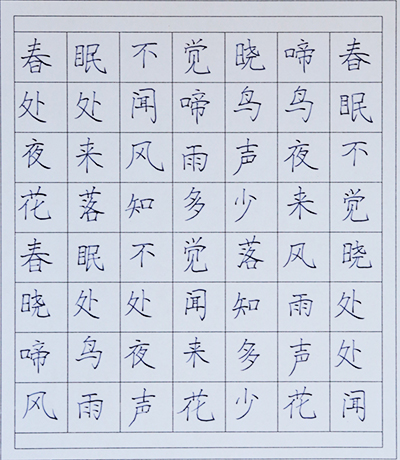 春眠不觉晓啼春
处处闻啼鸟鸟眠
夜来风雨声夜不
花落知多少来觉
春眠不觉落风晓
晓处处闻知雨处
啼鸟夜来多声处
风雨声花少花闻